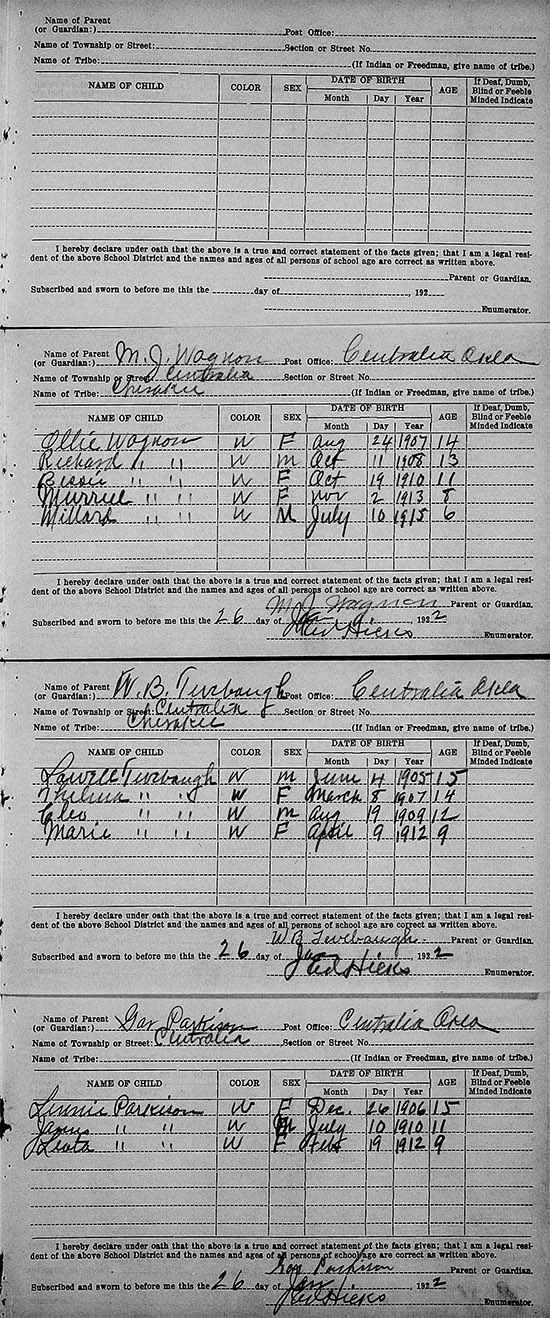 Name of Parent
(or Guardian:) Post Office:
Name of Township or Street: Section or Street No.
Name of Tribe: (If Indian or Freedman, give name of tribe.)
NAME OF CHILD COLOR SEX DATE OF BIRTH AGE If Deaf, Dumb, Blind or Feeble Minded Indicate
Month Day Year
I hereby declare under oath that the above is a true and correct statement of the facts given; that I am a legal resi-
dent of the above School District and the names and ages of all persons of school age are correct as written above.
Parent or Guardian.
Subscribed and sworn to before me this the day of , 192
Enumerator.
Name of Parent
(or Guardian:) M. J. Wagnon Post Office: Centralia Okla
Name of Township or Street: Centralia Section or Street No.
Name of Tribe: Cherokee (If Indian or Freedman, give name of tribe.)
NAME OF CHILD COLOR SEX DATE OF BIRTH AGE If Deaf, Dumb, Blind or Feeble Minded Indicate
Month Day Year
Ollie Wagnon W F Aug 24 1907 14
Richard " " W M Oct 11 1908 13
Bessie " " W F Oct 19 1910 11
Murriel " " W F Nov 2 1913 8
Millard " " W M July 10 1915 6
I hereby declare under oath that the above is a true and correct statement of the facts given; that I am a legal resi-
dent of the above School District and the names and ages of all persons of school age are correct as written above.
M. J. Wagnon Parent or Guardian.
Subscribed and sworn to before me this the 26 day of Jan , 1922
Ed Hicks Enumerator.
Name of Parent
(or Guardian:) W. B. Twebaugh Post Office: Centralia Okla
Name of Township or Street: Centralia Section or Street No.
Name of Tribe: Cherokee (If Indian or Freedman, give name of tribe.)
NAME OF CHILD COLOR SEX DATE OF BIRTH AGE If Deaf, Dumb, Blind or Feeble Minded Indicate
Month Day Year
Lowell Twebaugh W M June 4 1905 15
Thelma " " W F March 8 1907 14
Cleo " " W M Aug 19 1909 12
Marie " " W F April 9 1912 9
I hereby declare under oath that the above is a true and correct statement of the facts given; that I am a legal resi-
dent of the above School District and the names and ages of all persons of school age are correct as written above.
W B Twebaugh Parent or Guardian.
Subscribed and sworn to before me this the 26 day of Jan , 1922
Ed Hicks Enumerator.
Name of Parent
(or Guardian:) Parkison Post Office: Centralia Okla
Name of Township or Street: Centralia Section or Street No.
Name of Tribe: (If Indian or Freedman, give name of tribe.)
NAME OF CHILD COLOR SEX DATE OF BIRTH AGE If Deaf, Dumb, Blind or Feeble Minded Indicate
Month Day Year
Linnie Parkison W F Dec. 26 1906 15
James " " W M July 10 1910 11
Leota " " W F Feb 19 1912 9
I hereby declare under oath that the above is a true and correct statement of the facts given; that I am a legal resi-
dent of the above School District and the names and ages of all persons of school age are correct as written above.
Parkison Parent or Guardian.
Subscribed and sworn to before me this the 26 day of Jan , 1922
Ed Hicks Enumerator.